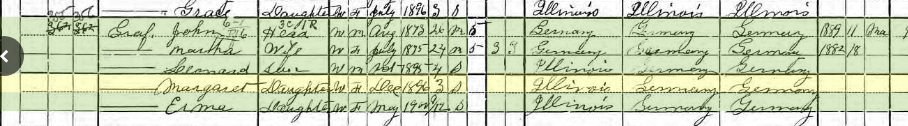 —— Grace Daughter W F July 1896 3 S Illinois Illinois Illinois
Graf John Head W M Aug 1873 26 M 5 Germany Germany Germany 1889 11 Na
—— Martha Wife W F July 1875 24 M 5 3 3 Germany Germany Germany 1882 18
—— Leonard Son W M 1895 4 S Illinois Germany Germany
—— Margaret Daughter W F Dec 1896 3 S Illinois Germany Germany
—— Erma Daughter W F May 1900 S Illinois Germany Germany